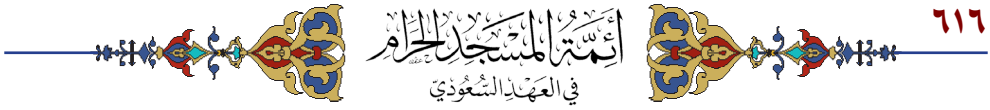 ٦١٦
أَئِمَّةُ المَسْجِدِ الحَرَامِ
فِي العَهْدِ السُّعُودِيِّ